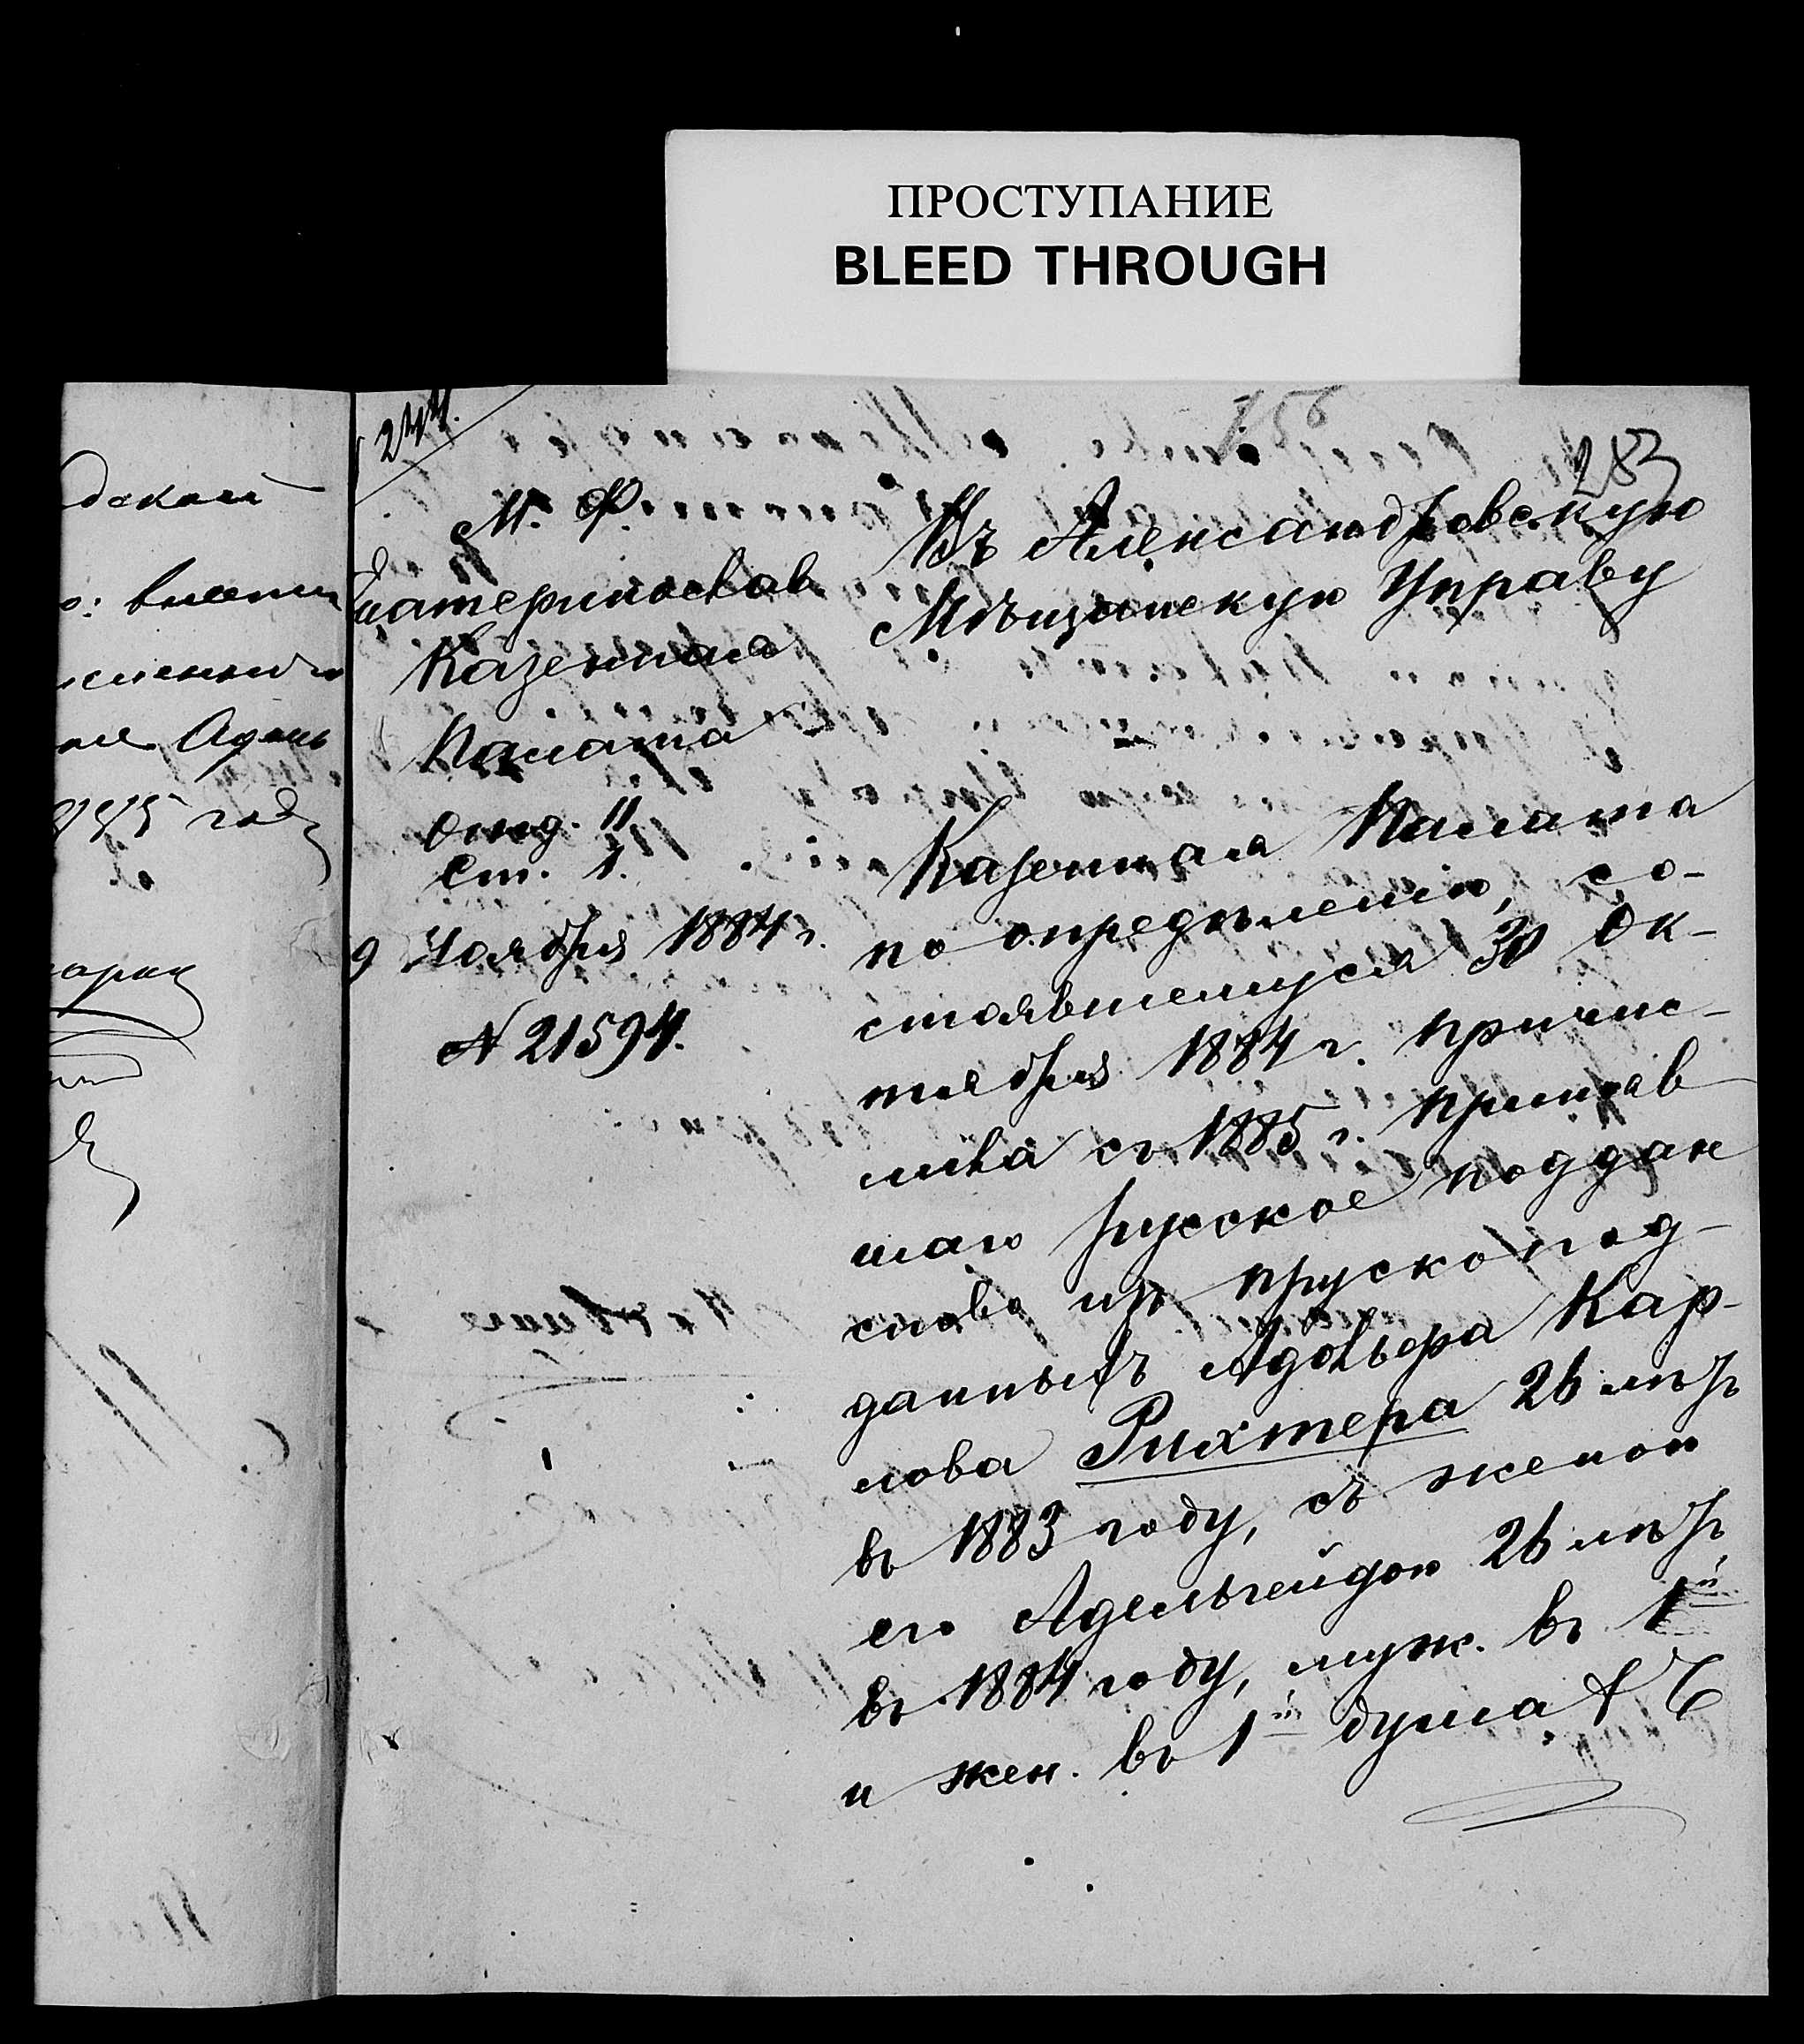 ПРОСТУПАНИЕ
BLEED THROUGH
одской
внести
Адель
1885 году
244.
283
М. Ф.
Екатеринослав
Казенная
Палата
Отд. II
Ст. 1.
9 Ноября 1884 г.
№ 21594.
Въ Александровскую
Мѣщанскую Управу
Казенная Палата
по опредѣленію, со-
стоявшемуся 30 Ок-
тября 1884 г. причис-
лила съ 1885 г. приняв
шаго русское поддан
ство изъ прускоппод-
данныхъ Адольфа Кар-
лова Рихтера 26 лѣтъ
въ 1883 году, съ женою
его Адельгейдою 26 лѣтъ
въ 1884 году, муж. въ 1й
и жен. въ 1й душах